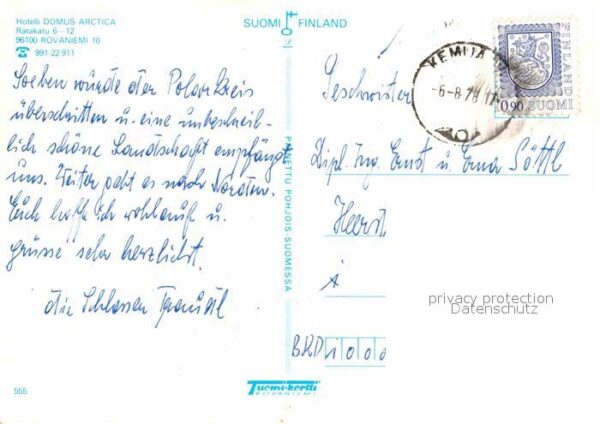 Hotelli DOMUS ARCTICA
Ratakatu 6-12
96100 ROVANIEMI 10
☎ 991-22 911
SUOMI FINLAND
Soeben wurde der Polarkreis
überschritten u. eine unbeschreib-
lich schöne Landschaft empfängt
uns. Weiter geht es nach Norden.
Euch hoff ich wohlauf u.
grüsse sehr herzlichst.
die
PAINETTU POHJOIS-SUOMESSA
KEMIJÄ
-6-8.78.17
FINLAND
0,90 SUOMI
Geschwister
Dipl. Ing. Ernst u. Erna Göttl
Heerst
A
BRD
privacy protection
Datenschutz
555
Tuomi-kortti
ROVANIEMI